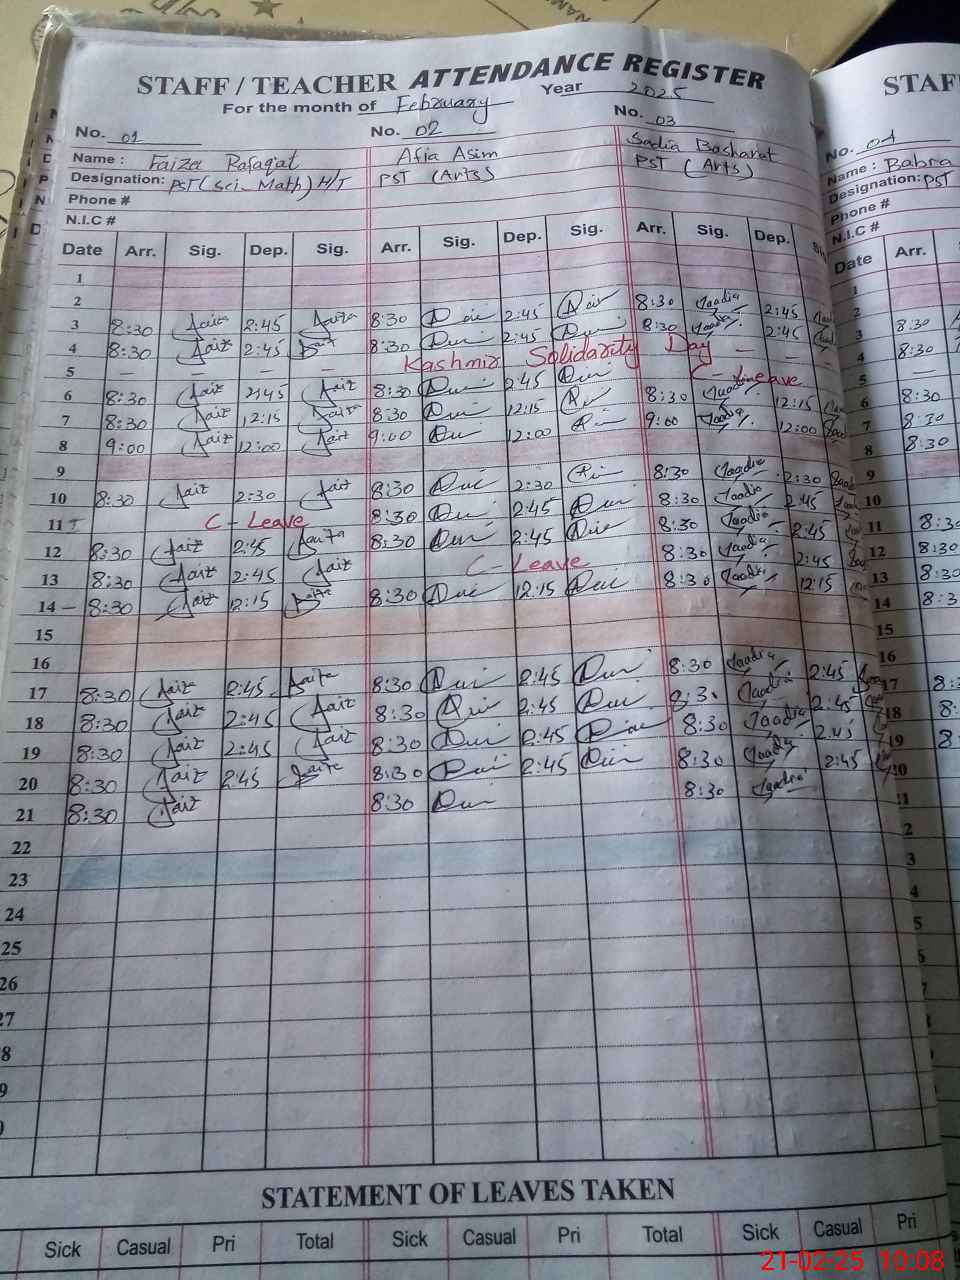 STAFF / TEACHER ATTENDANCE REGISTER
For the month of February Year 2025
No. 01 No. 02 No. 03
Name : Faiza Rafaqat Afia Asim Sadia Basharat
Designation: PST (Sci. Math) H/T PST (Arts) PST (Arts)
Phone #
N.I.C #
Date Arr. Sig. Dep. Sig. Arr. Sig. Dep. Sig. Arr. Sig. Dep.
1
2
3 8:30 Faiza 2:45 Faiza 8:30 2:45 8:30 Saadia 2:45
4 8:30 Faiz 2:45 Faiz 8:30 2:45 8:30 Saadia 2:45
5 — — — — Kashmir Solidarity Day — —
C - Leave
6 8:30 Faiz 2:45 Faiz 8:30 2:45
7 8:30 Faiz 12:15 Faiza 8:30 12:15 8:30 Saadia 12:15
8 9:00 Faiz 12:00 Faiz 9:00 12:00 9:00 Saadia 12:00
9
10 8:30 Faiz 2:30 Faiz 8:30 2:30 8:30 Saadia 2:30
11 C - Leave 8:30 2:45 8:30 Saadia 2:45
12 8:30 Faiz 2:45 Faiza 8:30 2:45 8:30 Saadia 2:45
13 8:30 Faiz 2:45 Faiz C - Leave 8:30 Saadia 2:45
14 8:30 Faiz 12:15 Faiza 8:30 12:15 8:30 Saadia 12:15
15
16
17 8:30 Faiz 2:45 Faiza 8:30 2:45 8:30 Saadia 2:45
18 8:30 Faiz 2:45 Faiz 8:30 2:45 8:30 Saadia 2:45
19 8:30 Faiz 2:45 Faiz 8:30 2:45 8:30 Saadia 2:45
20 8:30 Faiz 2:45 Faiza 8:30 2:45 8:30 Saadia 2:45
21 8:30 Faiz 8:30 8:30 Saadia
22
23
24
25
26
27
8
9
STATEMENT OF LEAVES TAKEN
Sick Casual Pri Total Sick Casual Pri Total Sick Casual Pri
STAF
No. 04
Name : Babra
Designation: PST
Phone #
N.I.C #
Date Arr.
1
2
3 8:30
4 8:30
5 —
6 8:30
7 8:30
8 8:30
9
10
11 8:30
12 8:30
13 8:30
14 8:3
15
16
17 8:
18 8:
19 8
20
21-02-25 10:08